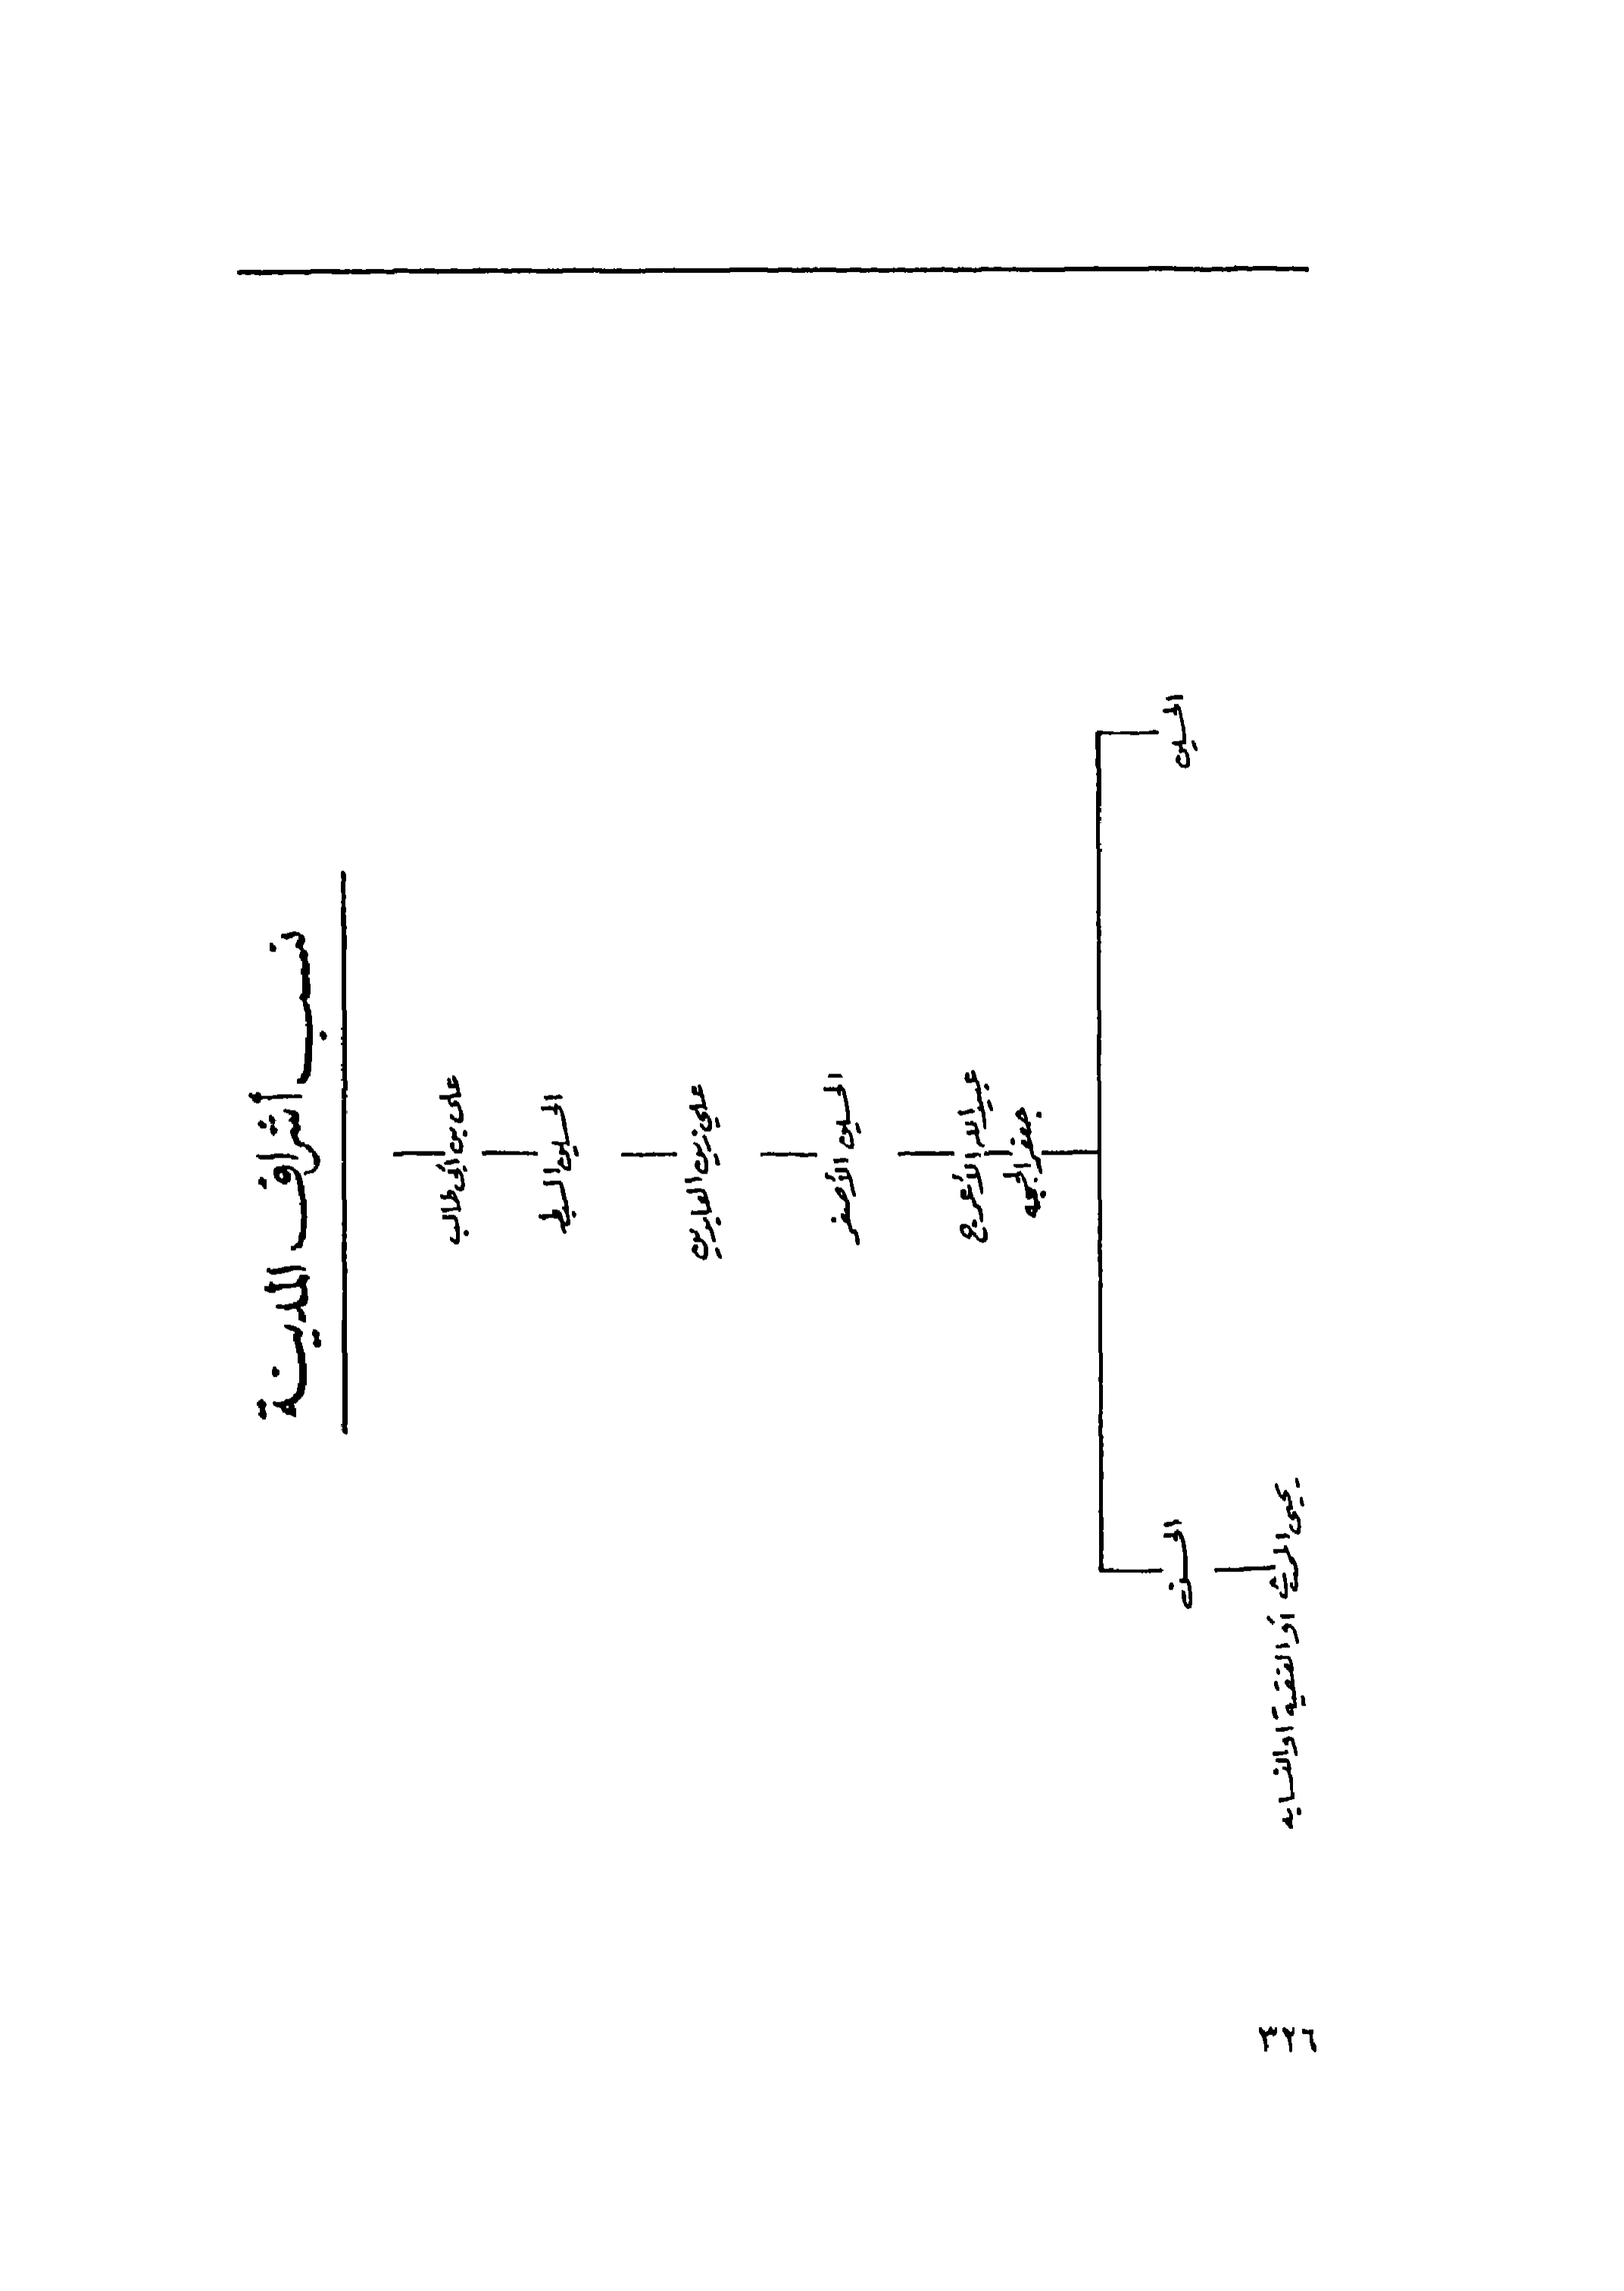 نسب أشراف المدينة
على بن أبى طالب
الحسين السبط
علي زين العابدين
الحسين الأصغر
عبيد الله الأعرج
جعفر الحجه
الحسين
الحسن
يحيى المحدث أو الفقية او النسابه
٣٢٦